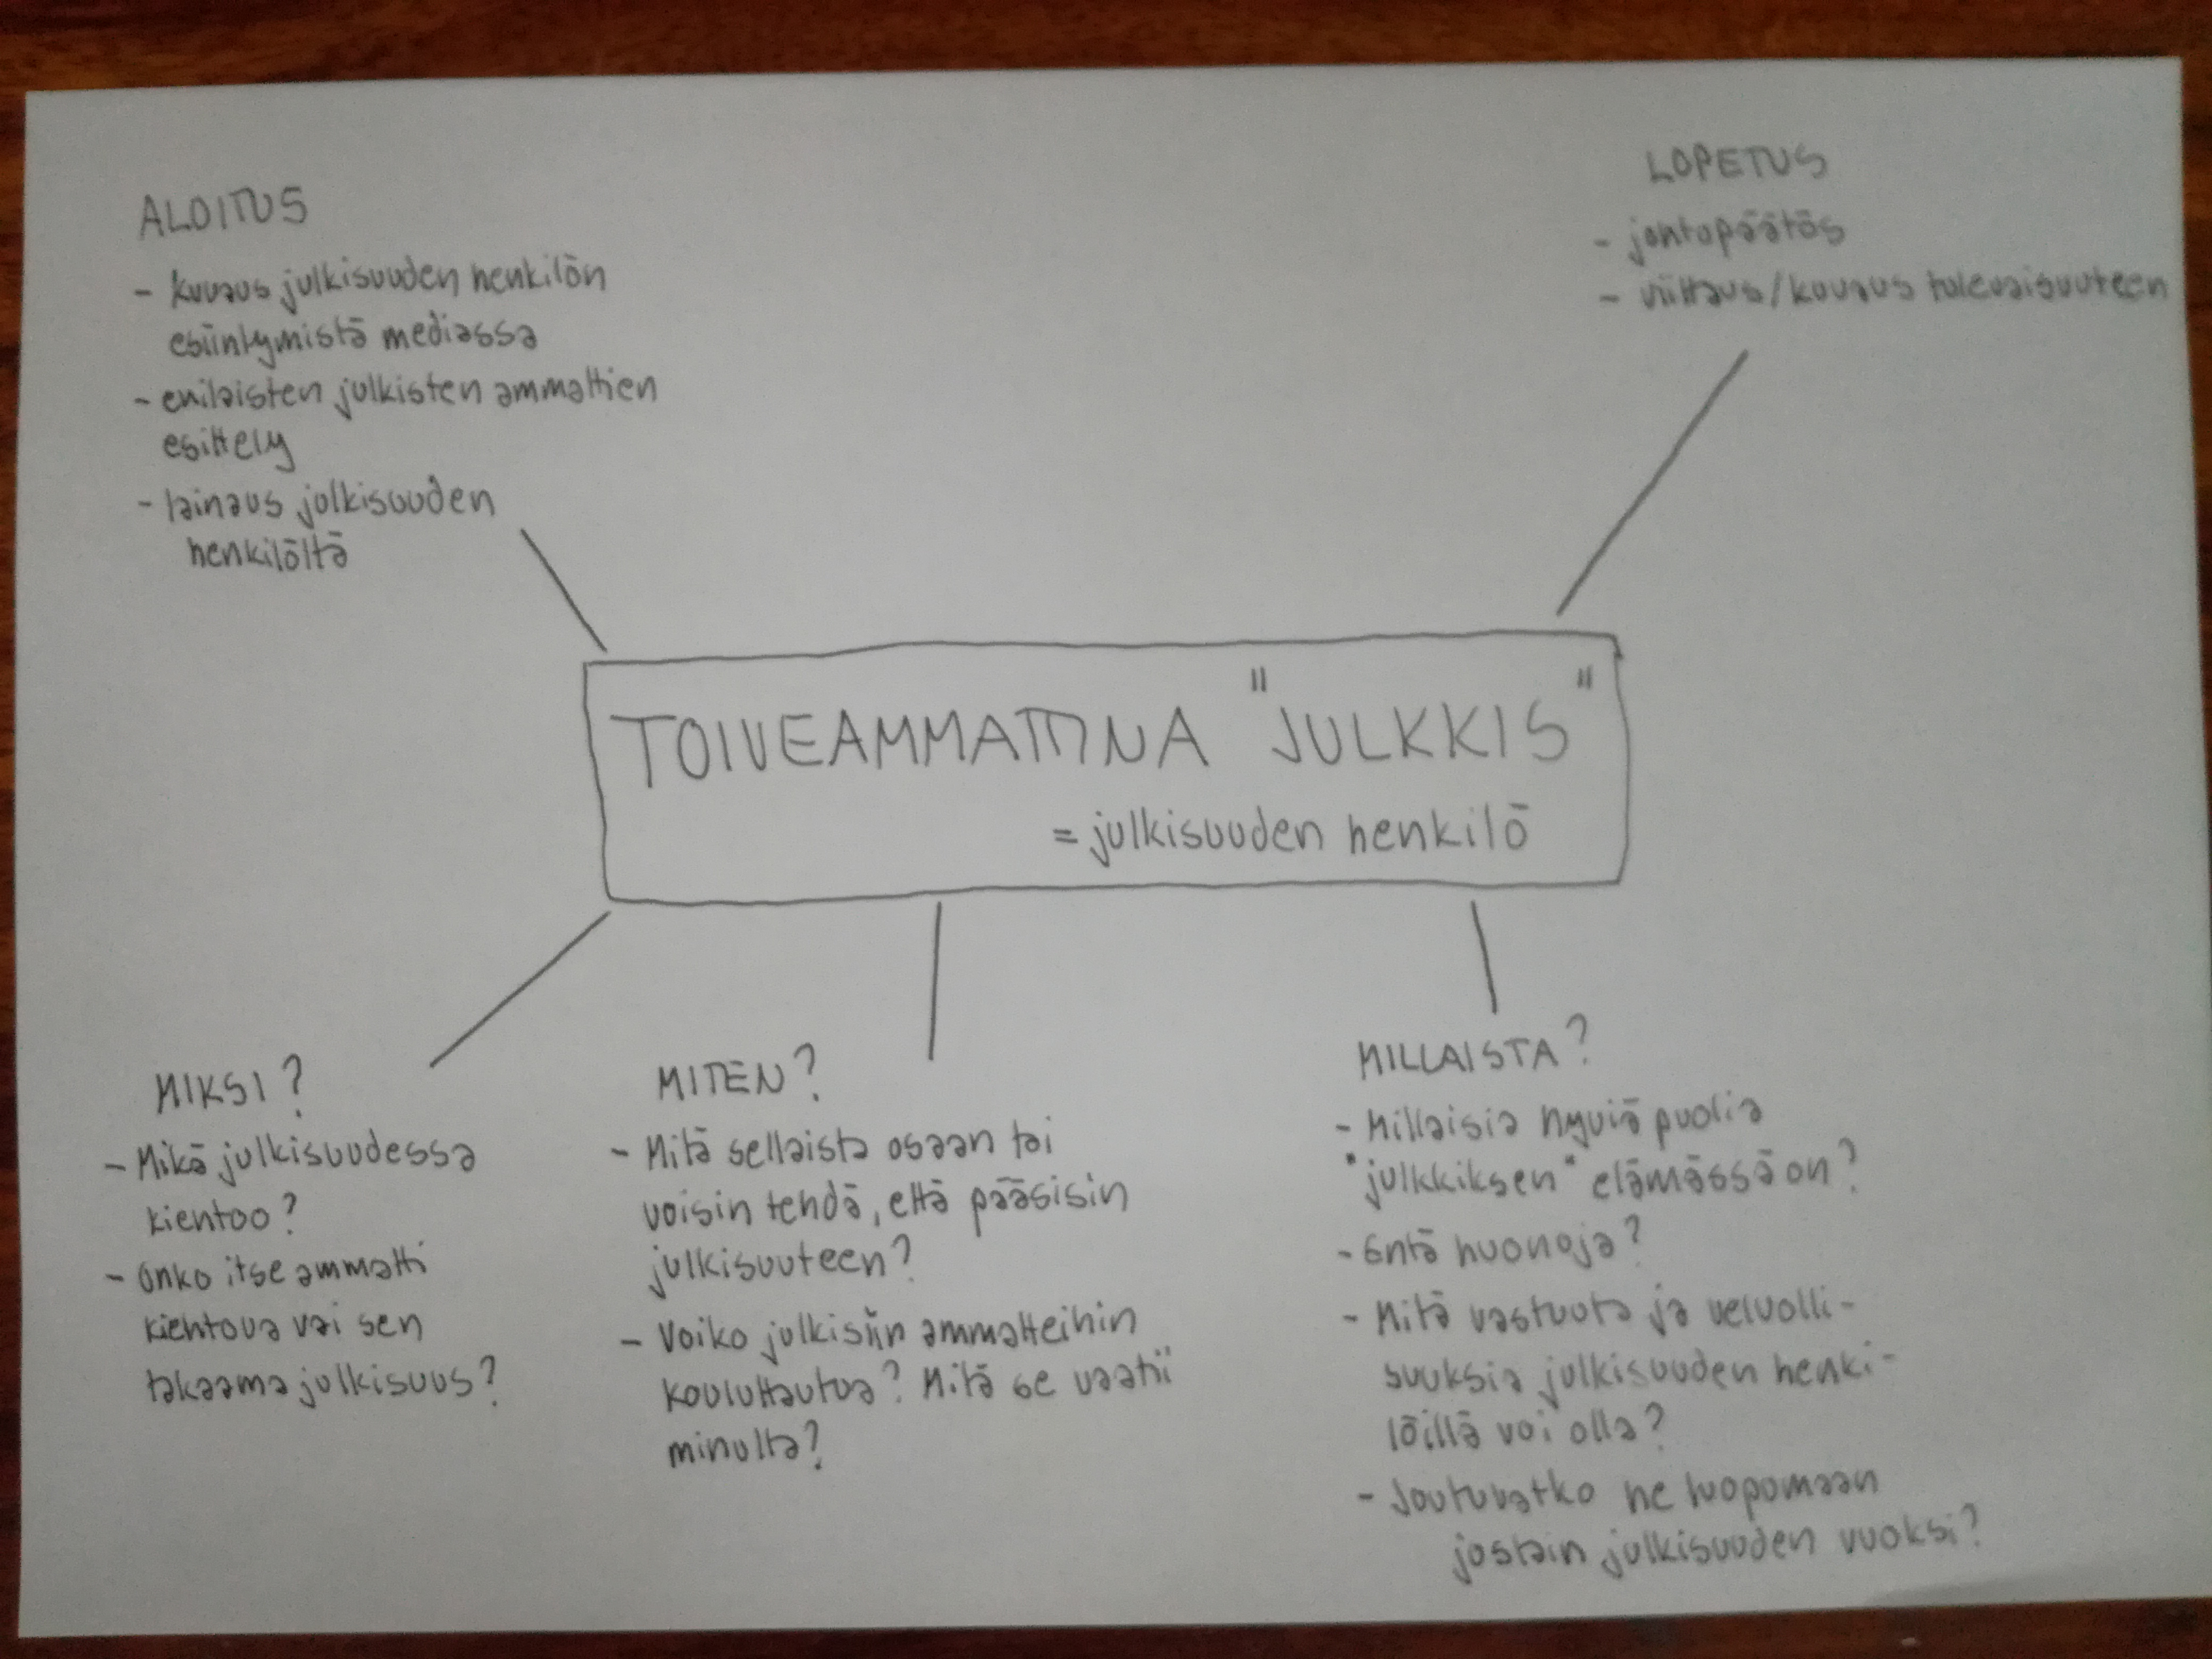 ALOITUS
- kuvaus julkisuuden henkilön
esiintymistä mediassa
- erilaisten julkisten ammattien
esittely
- lainaus julkisuuden
henkilöltä
LOPETUS
- johtopäätös
- viittaus/kuvaus tulevaisuuteen
TOIVEAMMATTINA "JULKKIS"
= julkisuuden henkilö
MIKSI?
- Mikä julkisuudessa
kiehtoo?
- Onko itse ammatti
kiehtova vai sen
takaama julkisuus?
MITEN?
- Mitä sellaista osaan tai
voisin tehdä, että pääsisin
julkisuuteen?
- Voiko julkisiin ammatteihin
kouluttautua? Mitä se vaatii
minulta?
MILLAISTA?
- Millaisia hyviä puolia
"julkkiksen" elämässä on?
- Entä huonoja?
- Mitä vastuuta ja velvolli-
suuksia julkisuuden henki-
löillä voi olla?
- Joutuvatko he luopumaan
jostain julkisuuden vuoksi?